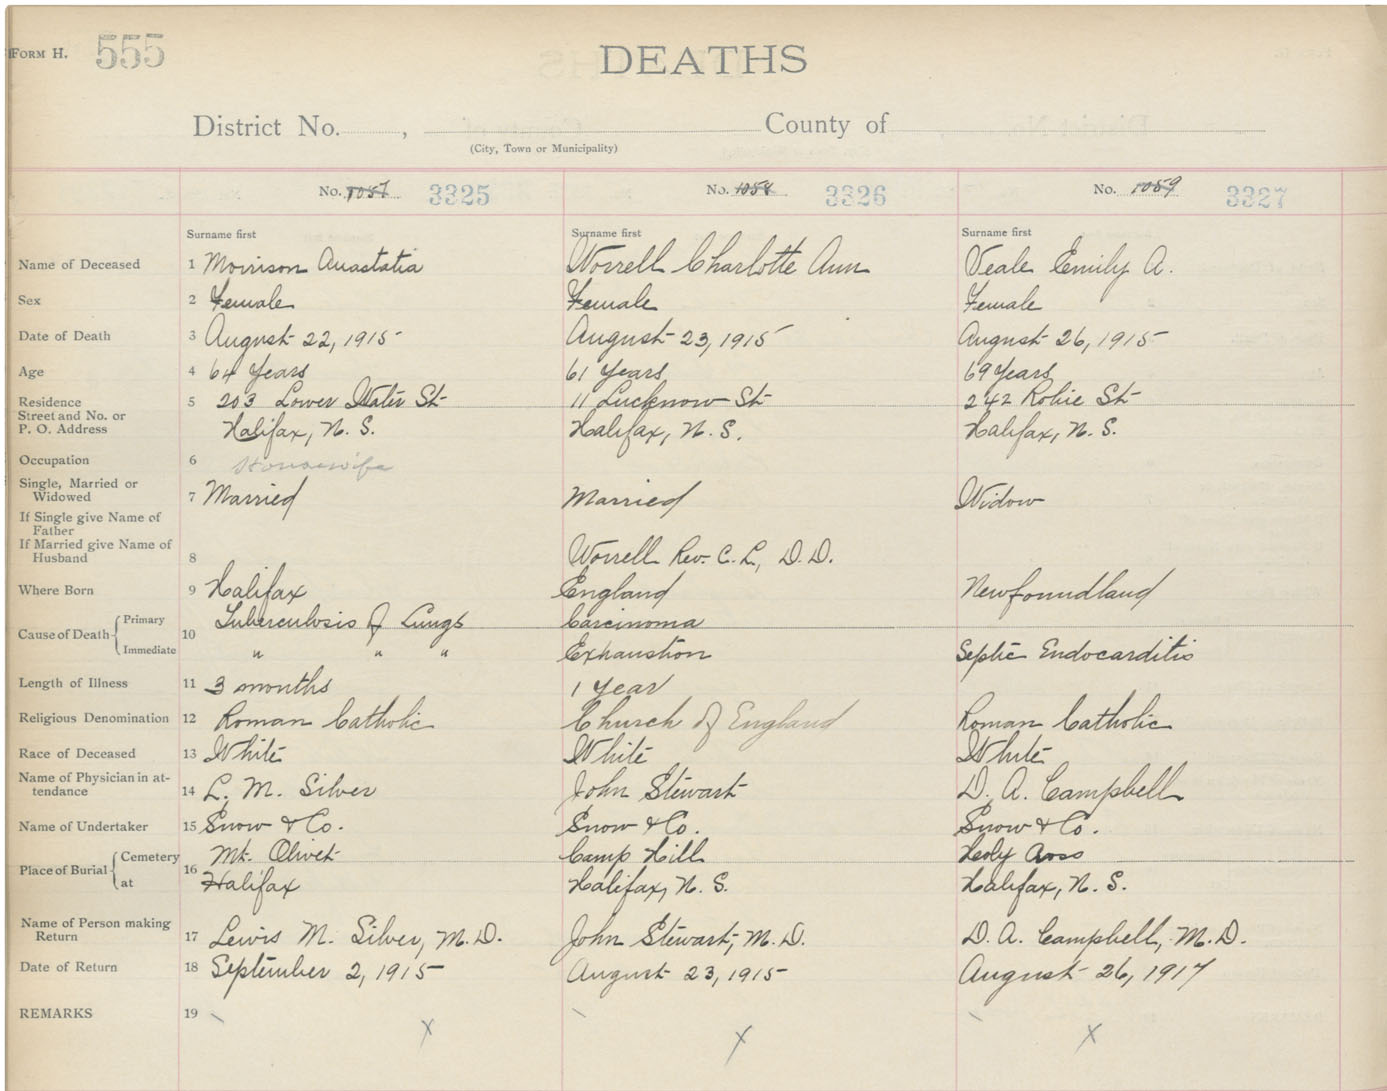 FORM H. 555
DEATHS
District No. , County of
(City, Town or Municipality)
No. 1057 3325 No. 1058 3326 No. 1059 3327
Surname first Surname first Surname first
Name of Deceased 1 Morrison Anastatia Worrell Charlotte Ann Veale Emily A.
Sex 2 Female Female Female
Date of Death 3 August 22, 1915 August 23, 1915 August 26, 1915
Age 4 64 Years 61 Years 69 Years
Residence 5 203 Lower Water St 11 Lucknow St 242 Robie St
Street and No. or
P. O. Address Halifax, N. S. Halifax, N. S. Halifax, N. S.
Occupation 6 Housewife
Single, Married or
Widowed 7 Married Married Widow
If Single give Name of
Father
If Married give Name of
Husband 8 Worrell Rev. C. L, D. D.
Where Born 9 Halifax England Newfoundland
Cause of Death 10 Primary Tuberculosis of Lungs Carcinoma
Immediate " " " Exhaustion Septic Endocarditis
Length of Illness 11 3 months 1 Year
Religious Denomination 12 Roman Catholic Church of England Roman Catholic
Race of Deceased 13 White White White
Name of Physician in at-
tendance 14 L. M. Silver John Stewart D. A. Campbell
Name of Undertaker 15 Snow & Co. Snow & Co. Snow & Co.
Place of Burial 16 Cemetery Mt. Olivet Camp Hill Holy Cross
at Halifax Halifax, N. S. Halifax, N. S.
Name of Person making
Return 17 Lewis M. Silver, M. D. John Stewart, M. D. D. A. Campbell, M. D.
Date of Return 18 September 2, 1915 August 23, 1915 August 26, 1917
REMARKS 19
X X X